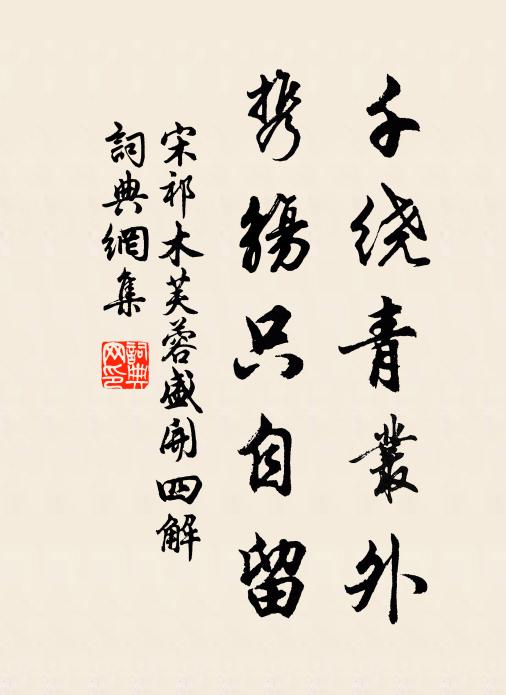 千绕青叢外
携觴只自留
宋祁木芙蓉盛開四解
詞典網集
詞典网印